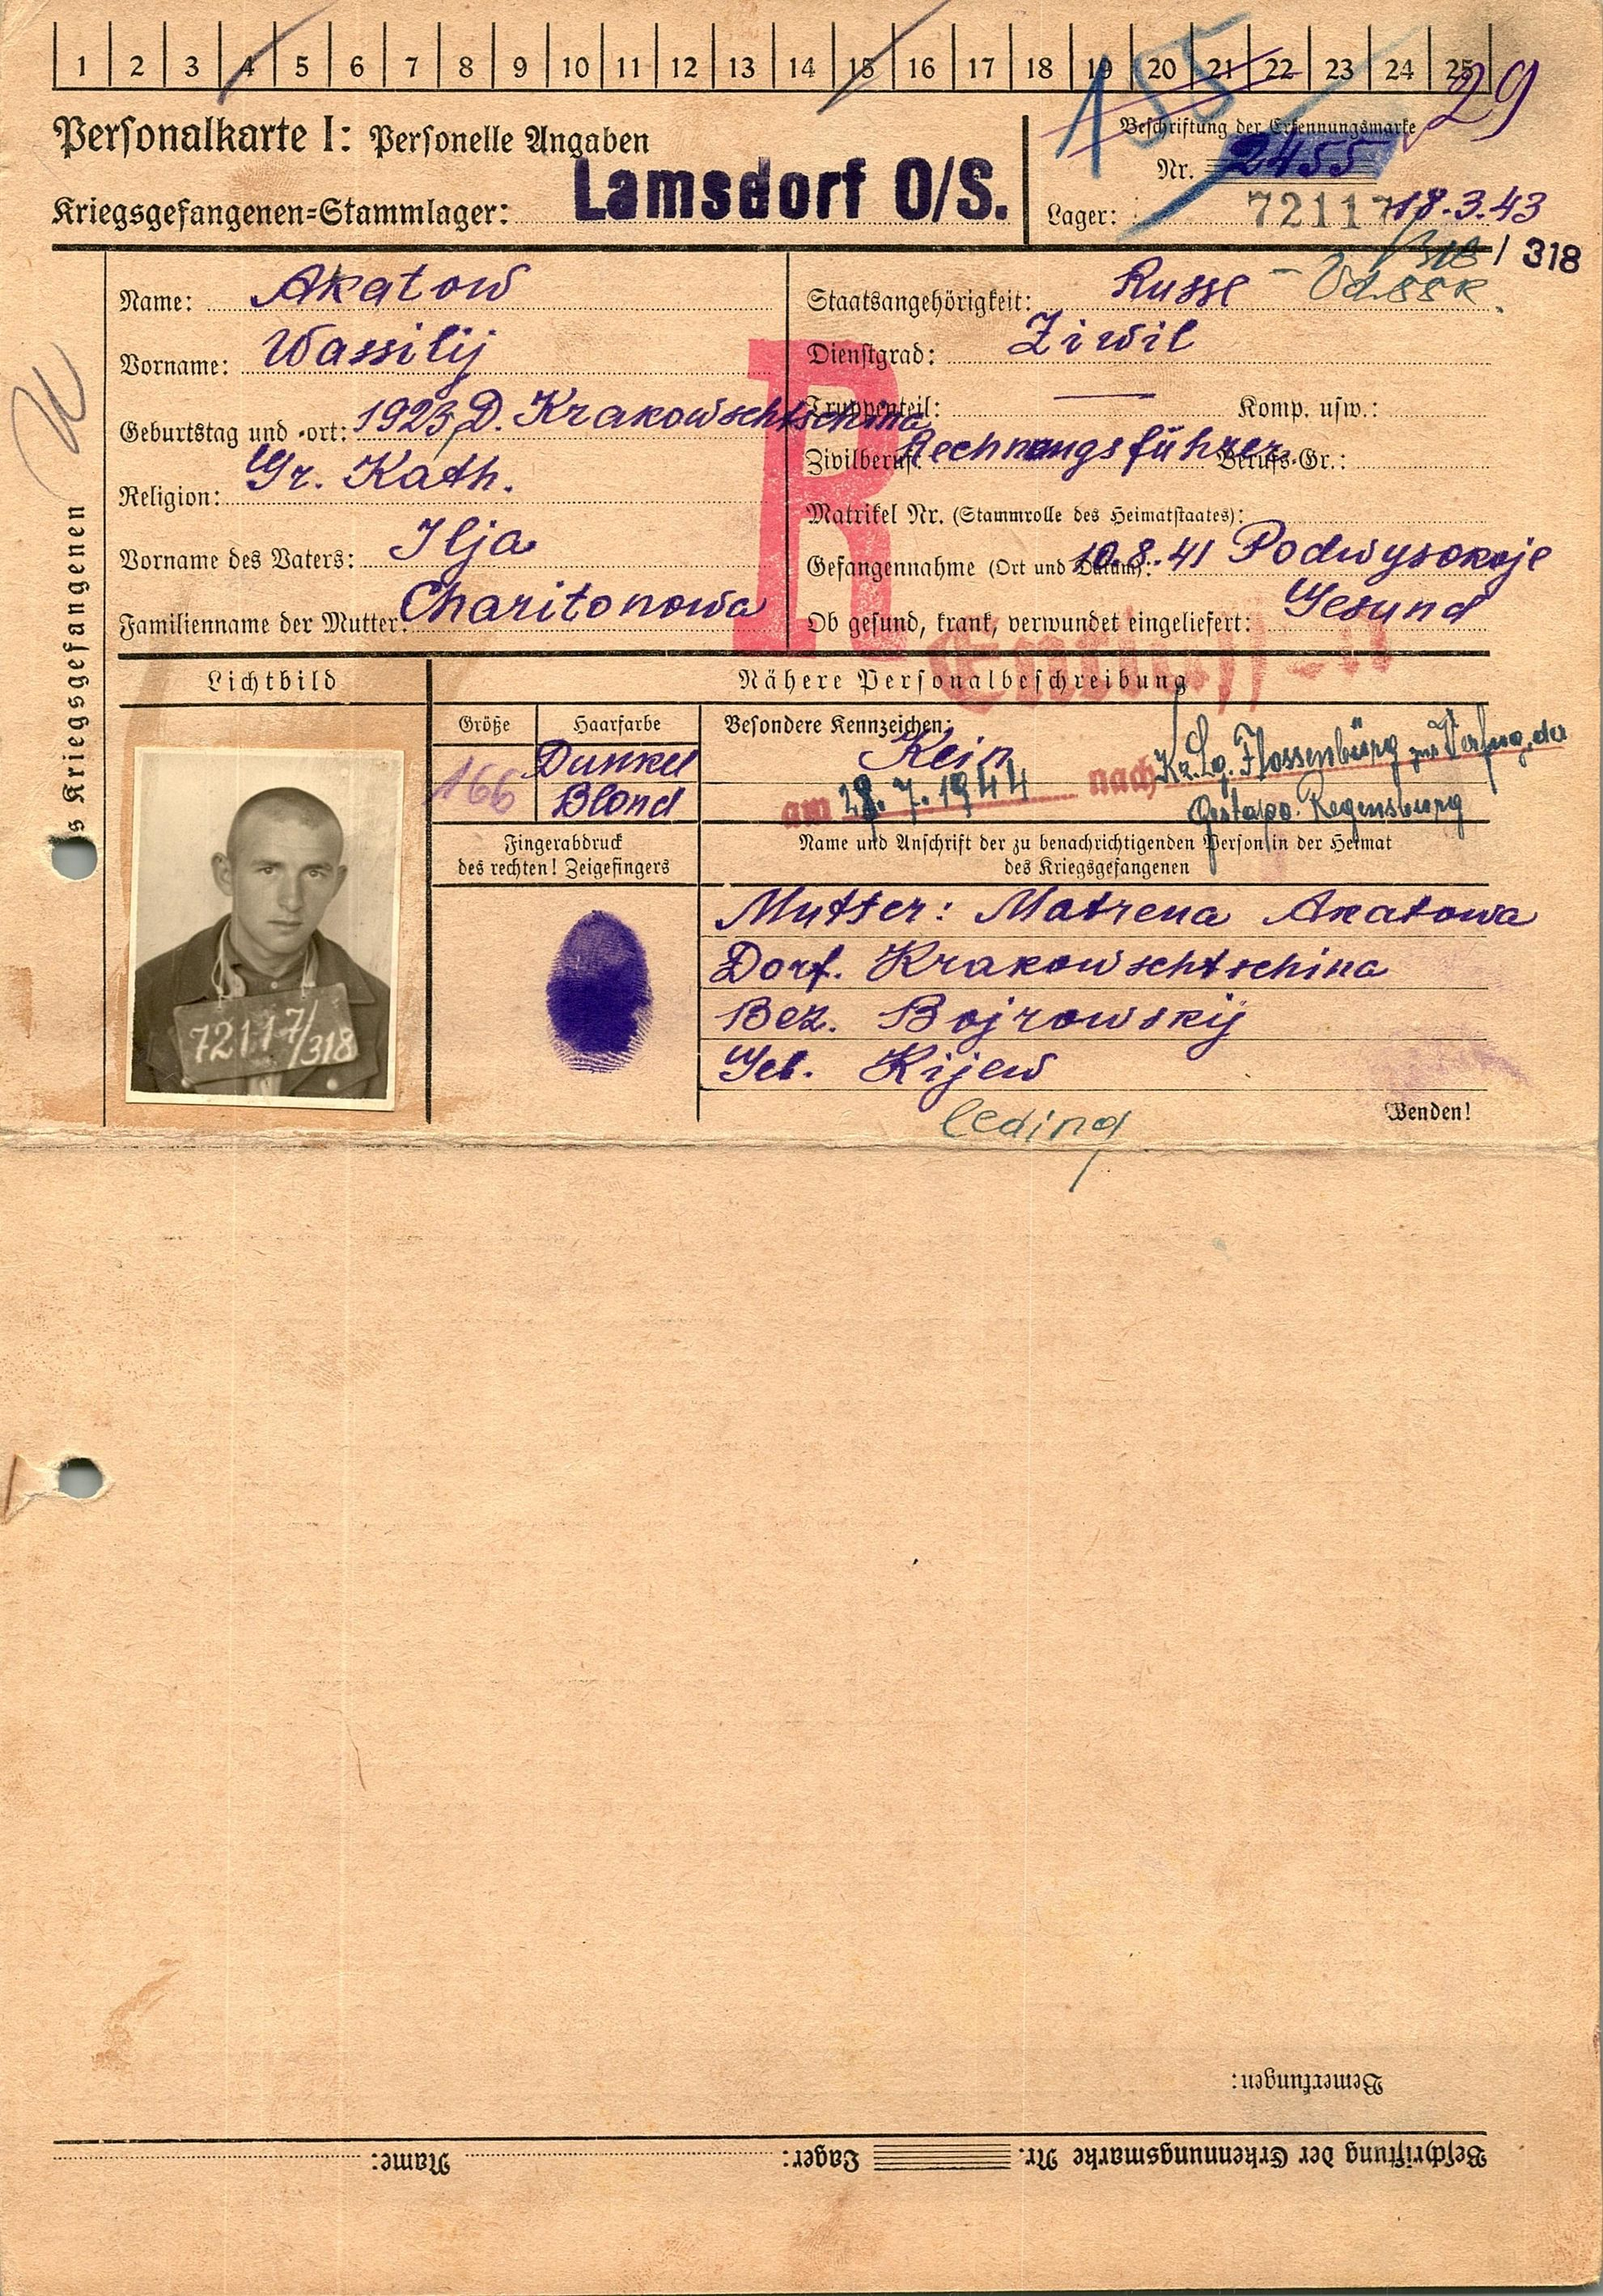 1 2 3 4 5 6 7 8 9 10 11 12 13 14 15 16 17 18 19 20 21 22 23 24 25
155
29
Personalkarte I: Personelle Angaben
Beschriftung der Erkennungsmarke
Nr. 2455
Kriegsgefangenen=Stammlager: Lamsdorf O/S.
Lager: 72117 18.3.43
318 / 318
Name: Akatow
Staatsangehörigkeit: Russe -
Vorname: Wassilij
Dienstgrad: Ziwil
Geburtstag und -ort: 1923, D. Krakowschtschina
Truppenteil: — Komp. usw.:
Zivilberuf: Rechnungsführer Berufs-Gr.:
Religion: Gr. Kath.
Matrikel Nr. (Stammrolle des Heimatstaates):
Vorname des Vaters: Ilja
Gefangennahme (Ort und Datum): 10.8.41 Podwysokoje
Familienname der Mutter: Charitonowa
Ob gesund, krank, verwundet eingeliefert: Gesund
R
Entlassen
s Kriegsgefangenen
Lichtbild
Nähere Personalbeschreibung
Größe
Haarfarbe
Besondere Kennzeichen:
166
Dunkel
Blond
Kein
am 28.7.1944 nach Kz. Lg. Flossenbürg zur Verfüg. der
Gestapo. Regensburg
Fingerabdruck
des rechten! Zeigefingers
Name und Anschrift der zu benachrichtigenden Person in der Heimat
des Kriegsgefangenen
72117/318
Mutter: Matrena Akatowa
Dorf. Krakowschtschina
Bez. Bojrowskij
Geb. Kijew
Wenden!
leding
Bemerkungen:
Beschriftung der Erkennungsmarke Nr. Lager: Name: